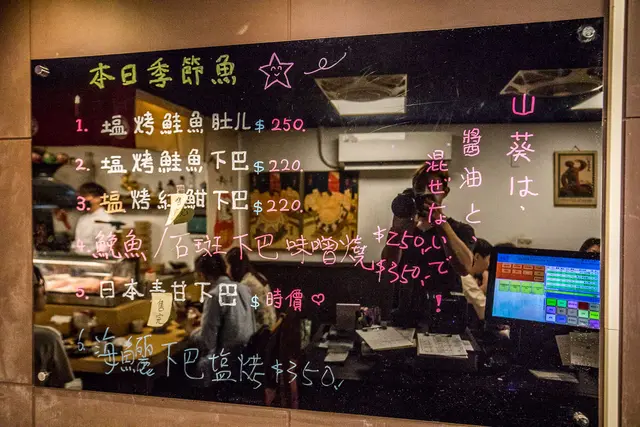 本日季節魚
1. 塩烤鮭魚肚儿 $250.
2. 塩烤鮭魚下巴 $220.
3. 塩烤紅魽下巴 $220.
4. 鮸魚/石斑下巴味噌燒 $250. $350.
5. 日本青甘下巴 $時價♡
6. 海鱺下巴塩烤 $350.
山葵は、
醤油と
混ぜないで!
售完